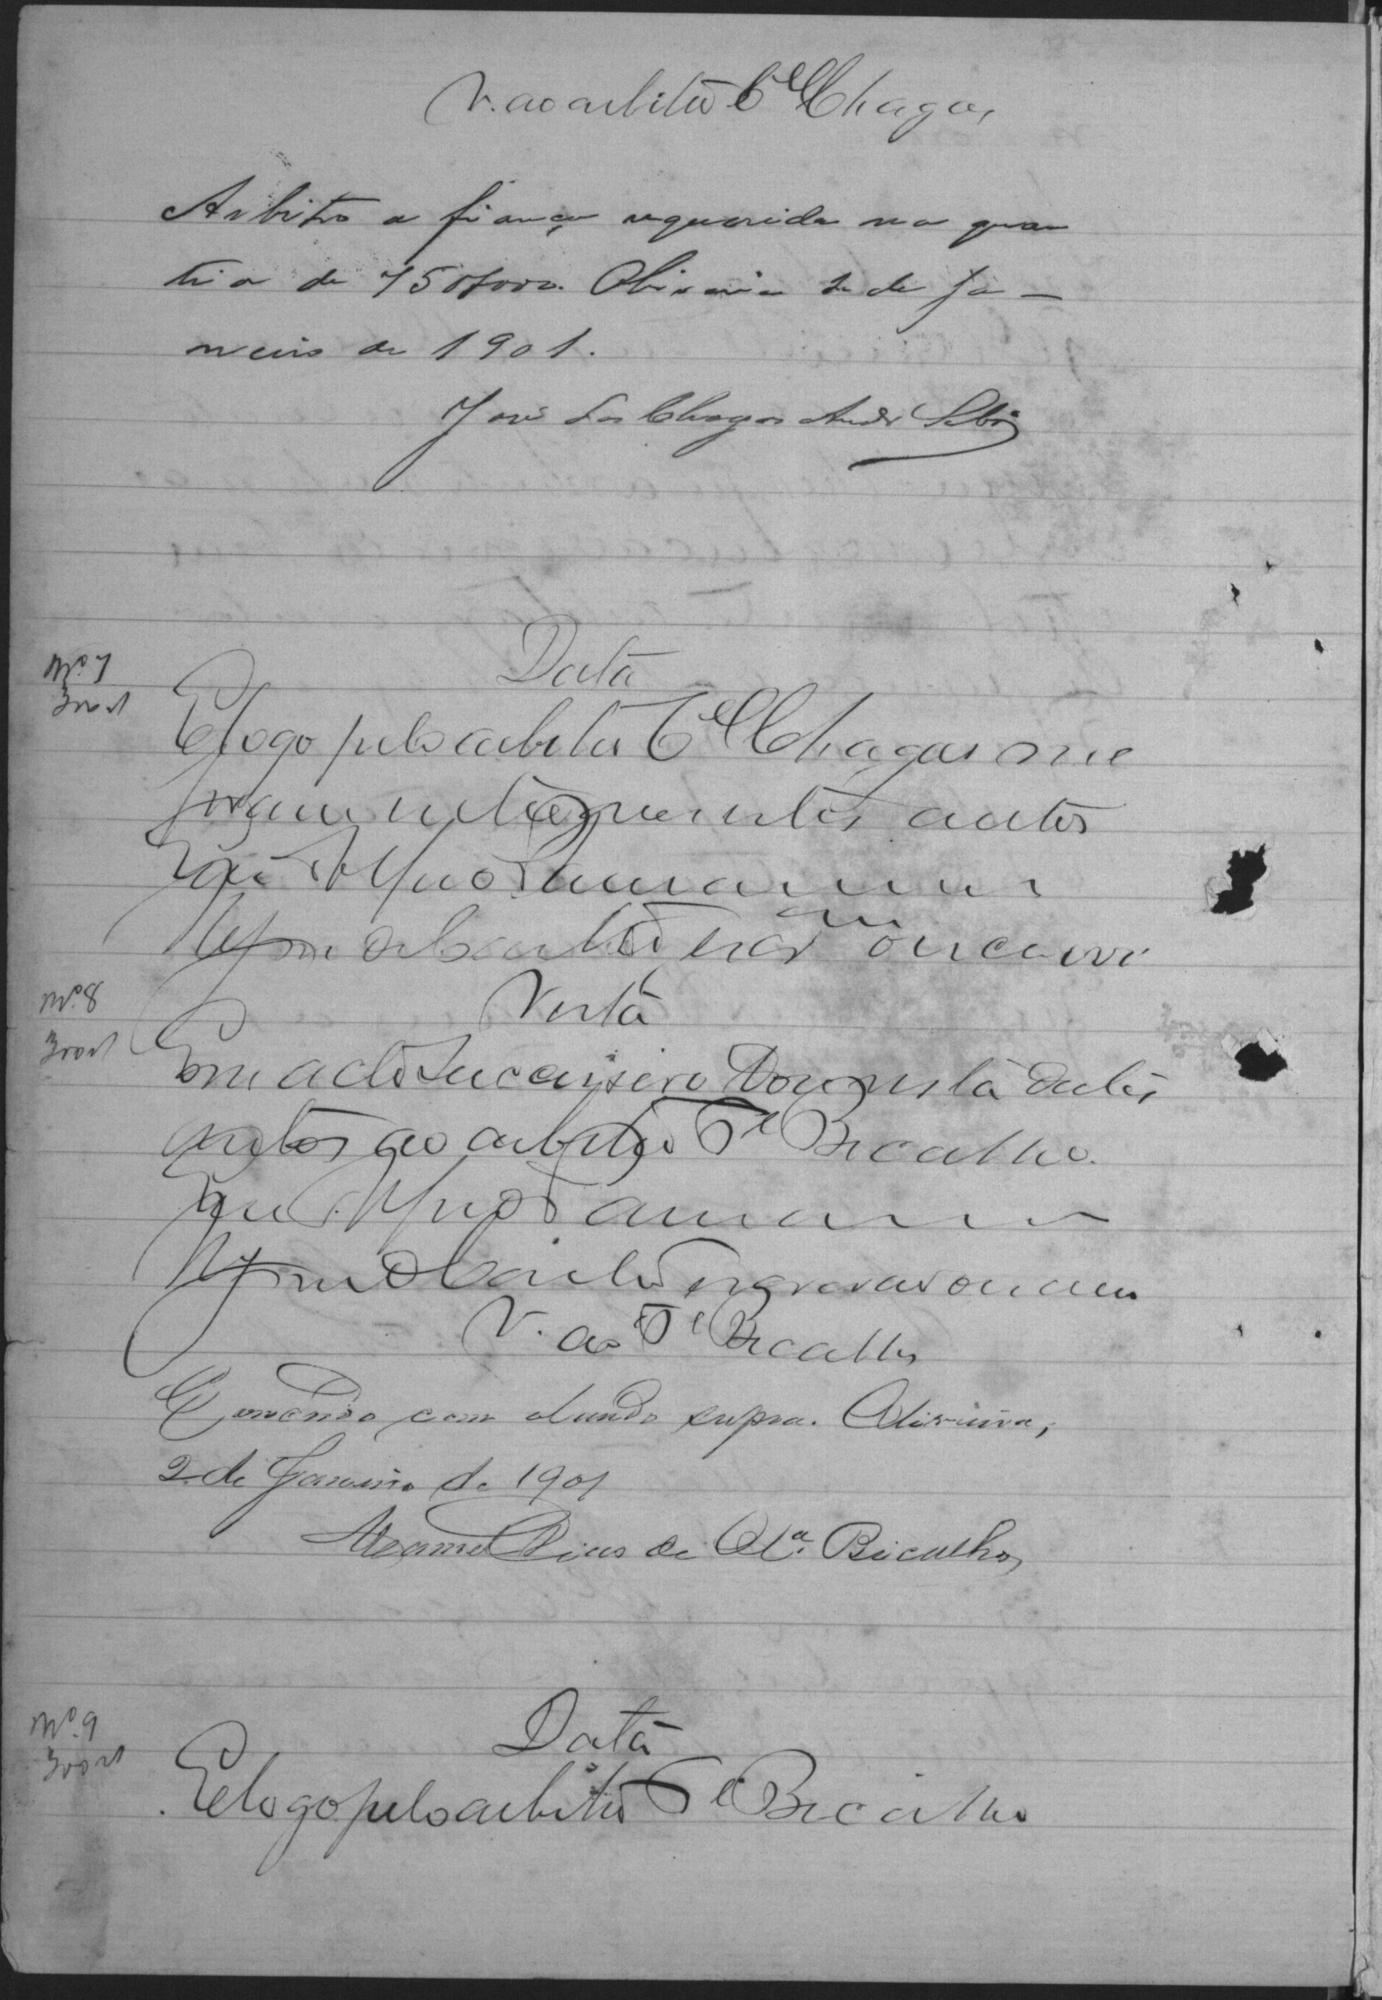 V. ao arbitro C.el Chagas
Arbitro a fiança requerida na quan
tia de 750$000. Oliveira 2 de Ja-
neiro de 1901.
José das Chagas Andr.
Data
Nº 7
300 rs
E logo pelo arbitro C.el Chagas me
foram entregues estes autos
Eu
escrevi
Vista
Nº 8
300 rs
Em acto sucessivo dou vista destes
autos ao arbitro T.e Bicalho.
Eu
V. ao T.e Bicalho
Concordo com o laudo supra. Oliveira,
2 de Janeiro de 1901
Manoel Dias de Olª. Bicalho
Data
Nº 9
300 rs
E logo pelo arbitro T.e Bicalho